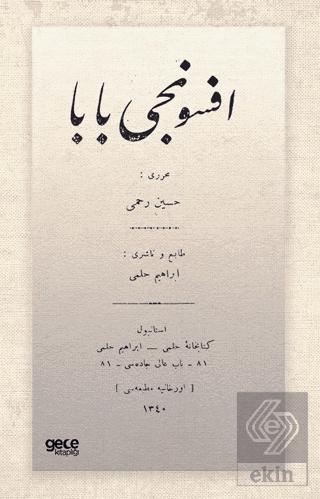 افسونجی بابا
محرری :
حسین رحمی
طابع و ناشری :
ابراهیم حلمی
استانبول
کتابخانهٔ حلمی — ابراهیم حلمی
٨١ - باب عالی جاده‌سی - ٨١
[ اورخانیه مطبعه‌سی ]
١٣٤٠
gece
kitaplığı
e
ekin